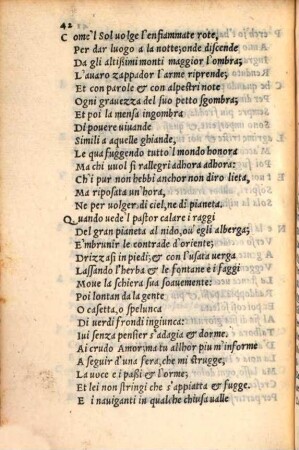 42
C ome'l Sol uolge l'enfiammate rote,
Per dar luogo a la notte; onde discende
Da gli altißimi monti maggior l'ombra;
L'auaro zappador l'arme riprende;
Et con parole & con alpestri note
Ogni grauezza del suo petto sgombra;
Et poi la mensa ingombra
Di pouere uiuande
Simili a quelle ghiande,
Le qua fuggendo tutto'l mondo honora
Ma chi uuol si rallegri adhora adhora:
Ch'i pur non hebbi anchor non diro lieta,
Ma riposata un'hora,
Ne per uolger di ciel, ne di pianeta.
Q uando uede'l pastor calare i raggi
Del gran pianeta al nido, ou'egli alberga;
E'mbrunir le contrade d'oriente;
Drizzasi in piedi; & con l'usata uerga
Lassando l'herba & le fontane e i faggi
Moue la schiera sua soauemente:
Poi lontan da la gente
O casetta, o spelunca
Di uerdi frondi ingiunca:
Iui senza pensier s'adagia & dorme.
Ai crudo Amor, ma tu allhor piu m'informe
A seguir d'una fera, che mi strugge,
La uoce e i paßi & l'orme;
Et lei non stringi che s'appiatta & fugge.
E i nauiganti in qualche chiusa ualle